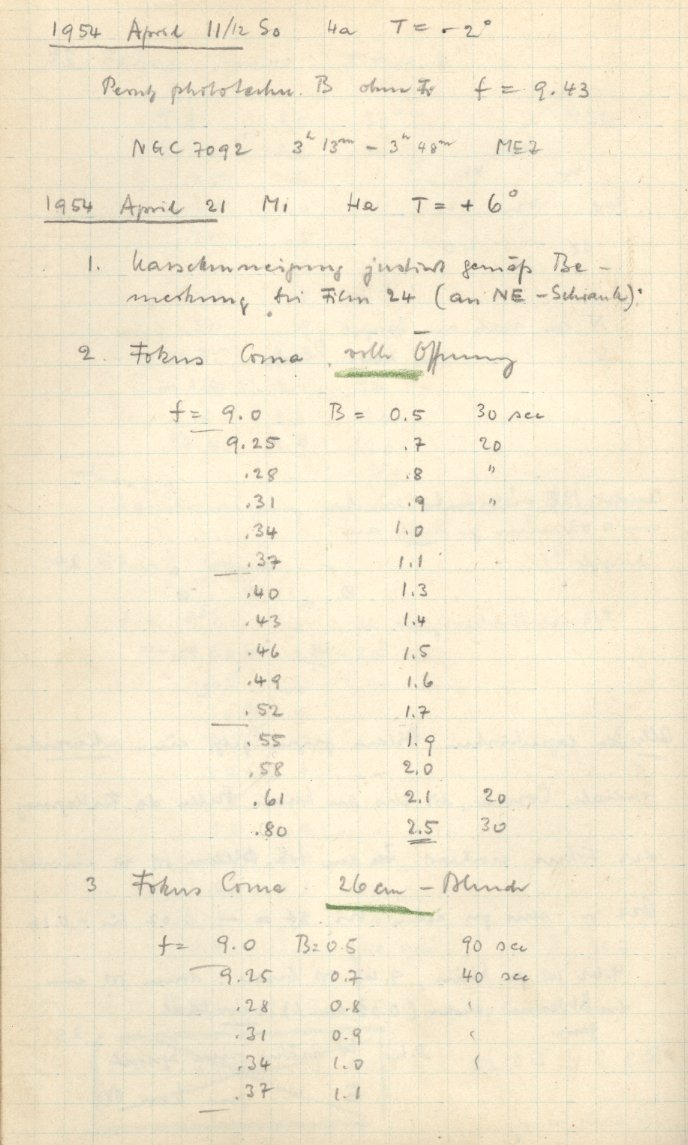 1954 April 11/12 So 4a T = -2°
Perutz phototechn. B ohne f = 9.43
NGC 7092 3h 13m - 3h 48m MEZ
1954 April 21 Mi 4a T = +6°
1. Kassettenneigung justiert gemäß Be-
merkung bei Film 24 (an NE-Schraube).
2. Fokus Coma, volle Öffnung
f = 9.0 B = 0.5 30 sec
9.25 .7 20
.28 .8 "
.31 .9 "
.34 1.0
.37 1.1
.40 1.3
.43 1.4
.46 1.5
.49 1.6
.52 1.7
.55 1.9
.58 2.0
.61 2.1 20
.80 2.5 30
3 Fokus Coma 26 cm - Blende
f = 9.0 B = 0.5 90 sec
9.25 0.7 40 sec
.28 0.8 "
.31 0.9 "
.34 1.0 "
.37 1.1